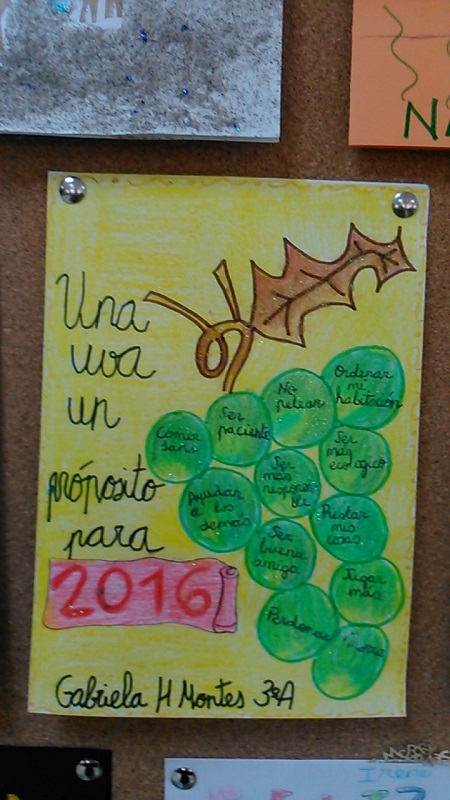 Una
uva
un
próposito
para
2016
Ordenar
mi
habitación
No
pelear
Ser
paciente
Comer
sano
Ser
más
ecológico
Ser
más
responsa
ble
Ayudar
a los
demás
Prestar
mis
cosas
Ser
buena
amiga
Jugar
más
Perdonar
Gabriela H Montes 3ºA
Irene